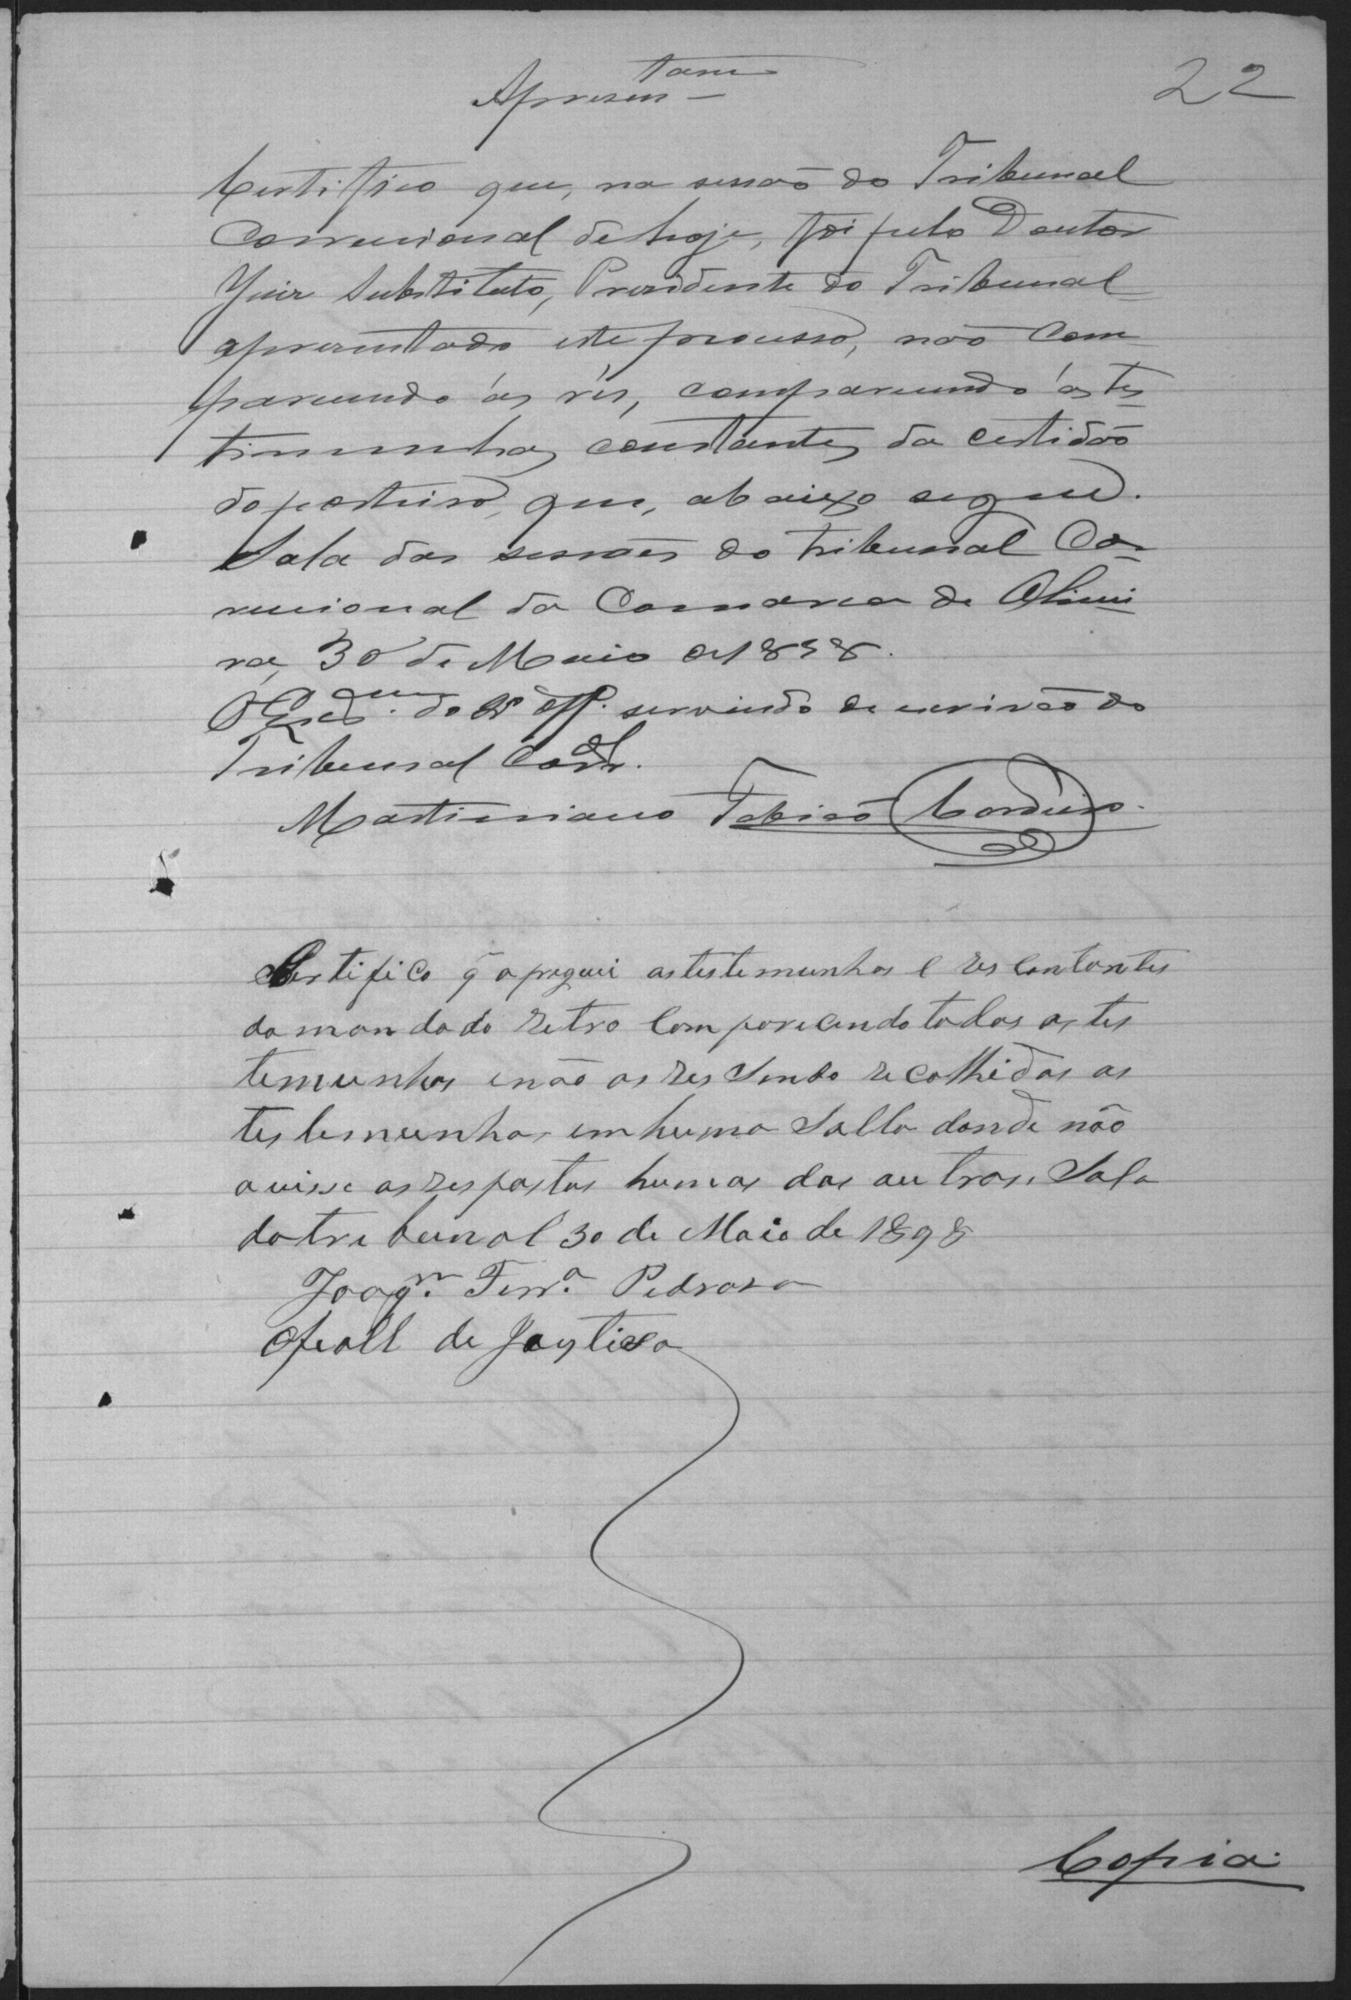 22
Apresen tam
Certifico que, na sessão do Tribunal
Correcional de hoje, foi pelo Doutor
Juiz Substituto, Presidente do Tribunal
apresentado este processo, não com
parecendo ás rés, comparecendo ás tes
timunhas constantes da certidão
do porteiro, que, abaixo segue.
Sala das sessões do Tribunal Cor
recional da Comarca de Olivei
ra, 30 de Maio de 1898.
O do Off. servindo de escrivão do
Tribunal Corr.al
Martiniano Tobias Cordeiro.
Certifico q apreguei as testemunhas e res contantes
do mandado retro Comparecendo todas as tes
temunhas e não as res Sendo recolhidas as
testemunhas em huma Salla donde não
ouisse as respostas humas das outras. Sala
do tribunal 30 de Maio de 1898
Joaqm. Ferra. Pedroso
Oficall de Justisa
Copia.